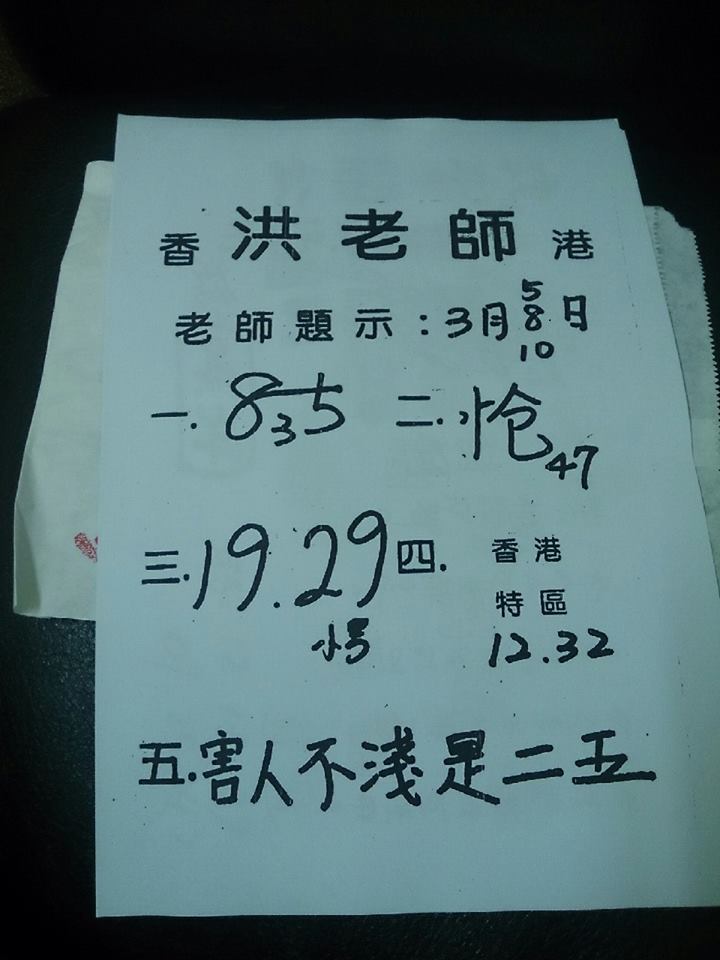 香 洪老師 港
老師題示：3月 5 8 10 日
一. 835 二. 怆 47
三. 19. 29 小号 四. 香港
特區
12.32
五. 害人不淺是二五